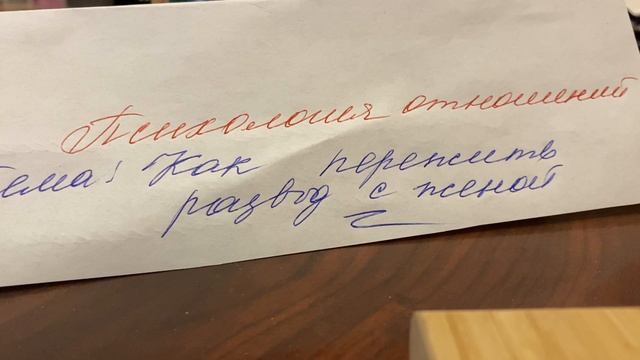 Психология отношений
ема: Как пережить
развод с женой